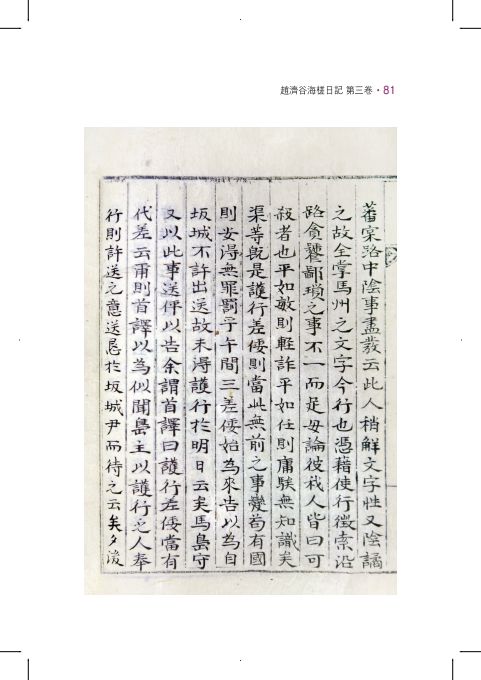 趙濟谷海槎日記 第三卷 · 81
蕃案路中陰事盡發云此人稍解文字性又陰譎
之故全掌馬州之文字今行也憑藉使行徵索沿
路貪饕鄙瑣之事不一而足毋論彼我人皆曰可
殺者也平如敏則輕詐平如任則庸騃無知識矣
渠等旣是護行差倭則當此無前之事變苟有國
則安得無罪罰乎午間三差倭始為來告以為自
坂城不許出送故未得護行於明日云矣馬島守
又以此事送伻以告余謂首譯曰護行差倭當有
代差云甫則首譯以為似聞島主以護行之人奉
行則許送之意送恳於坂城尹而待之云矣夕後